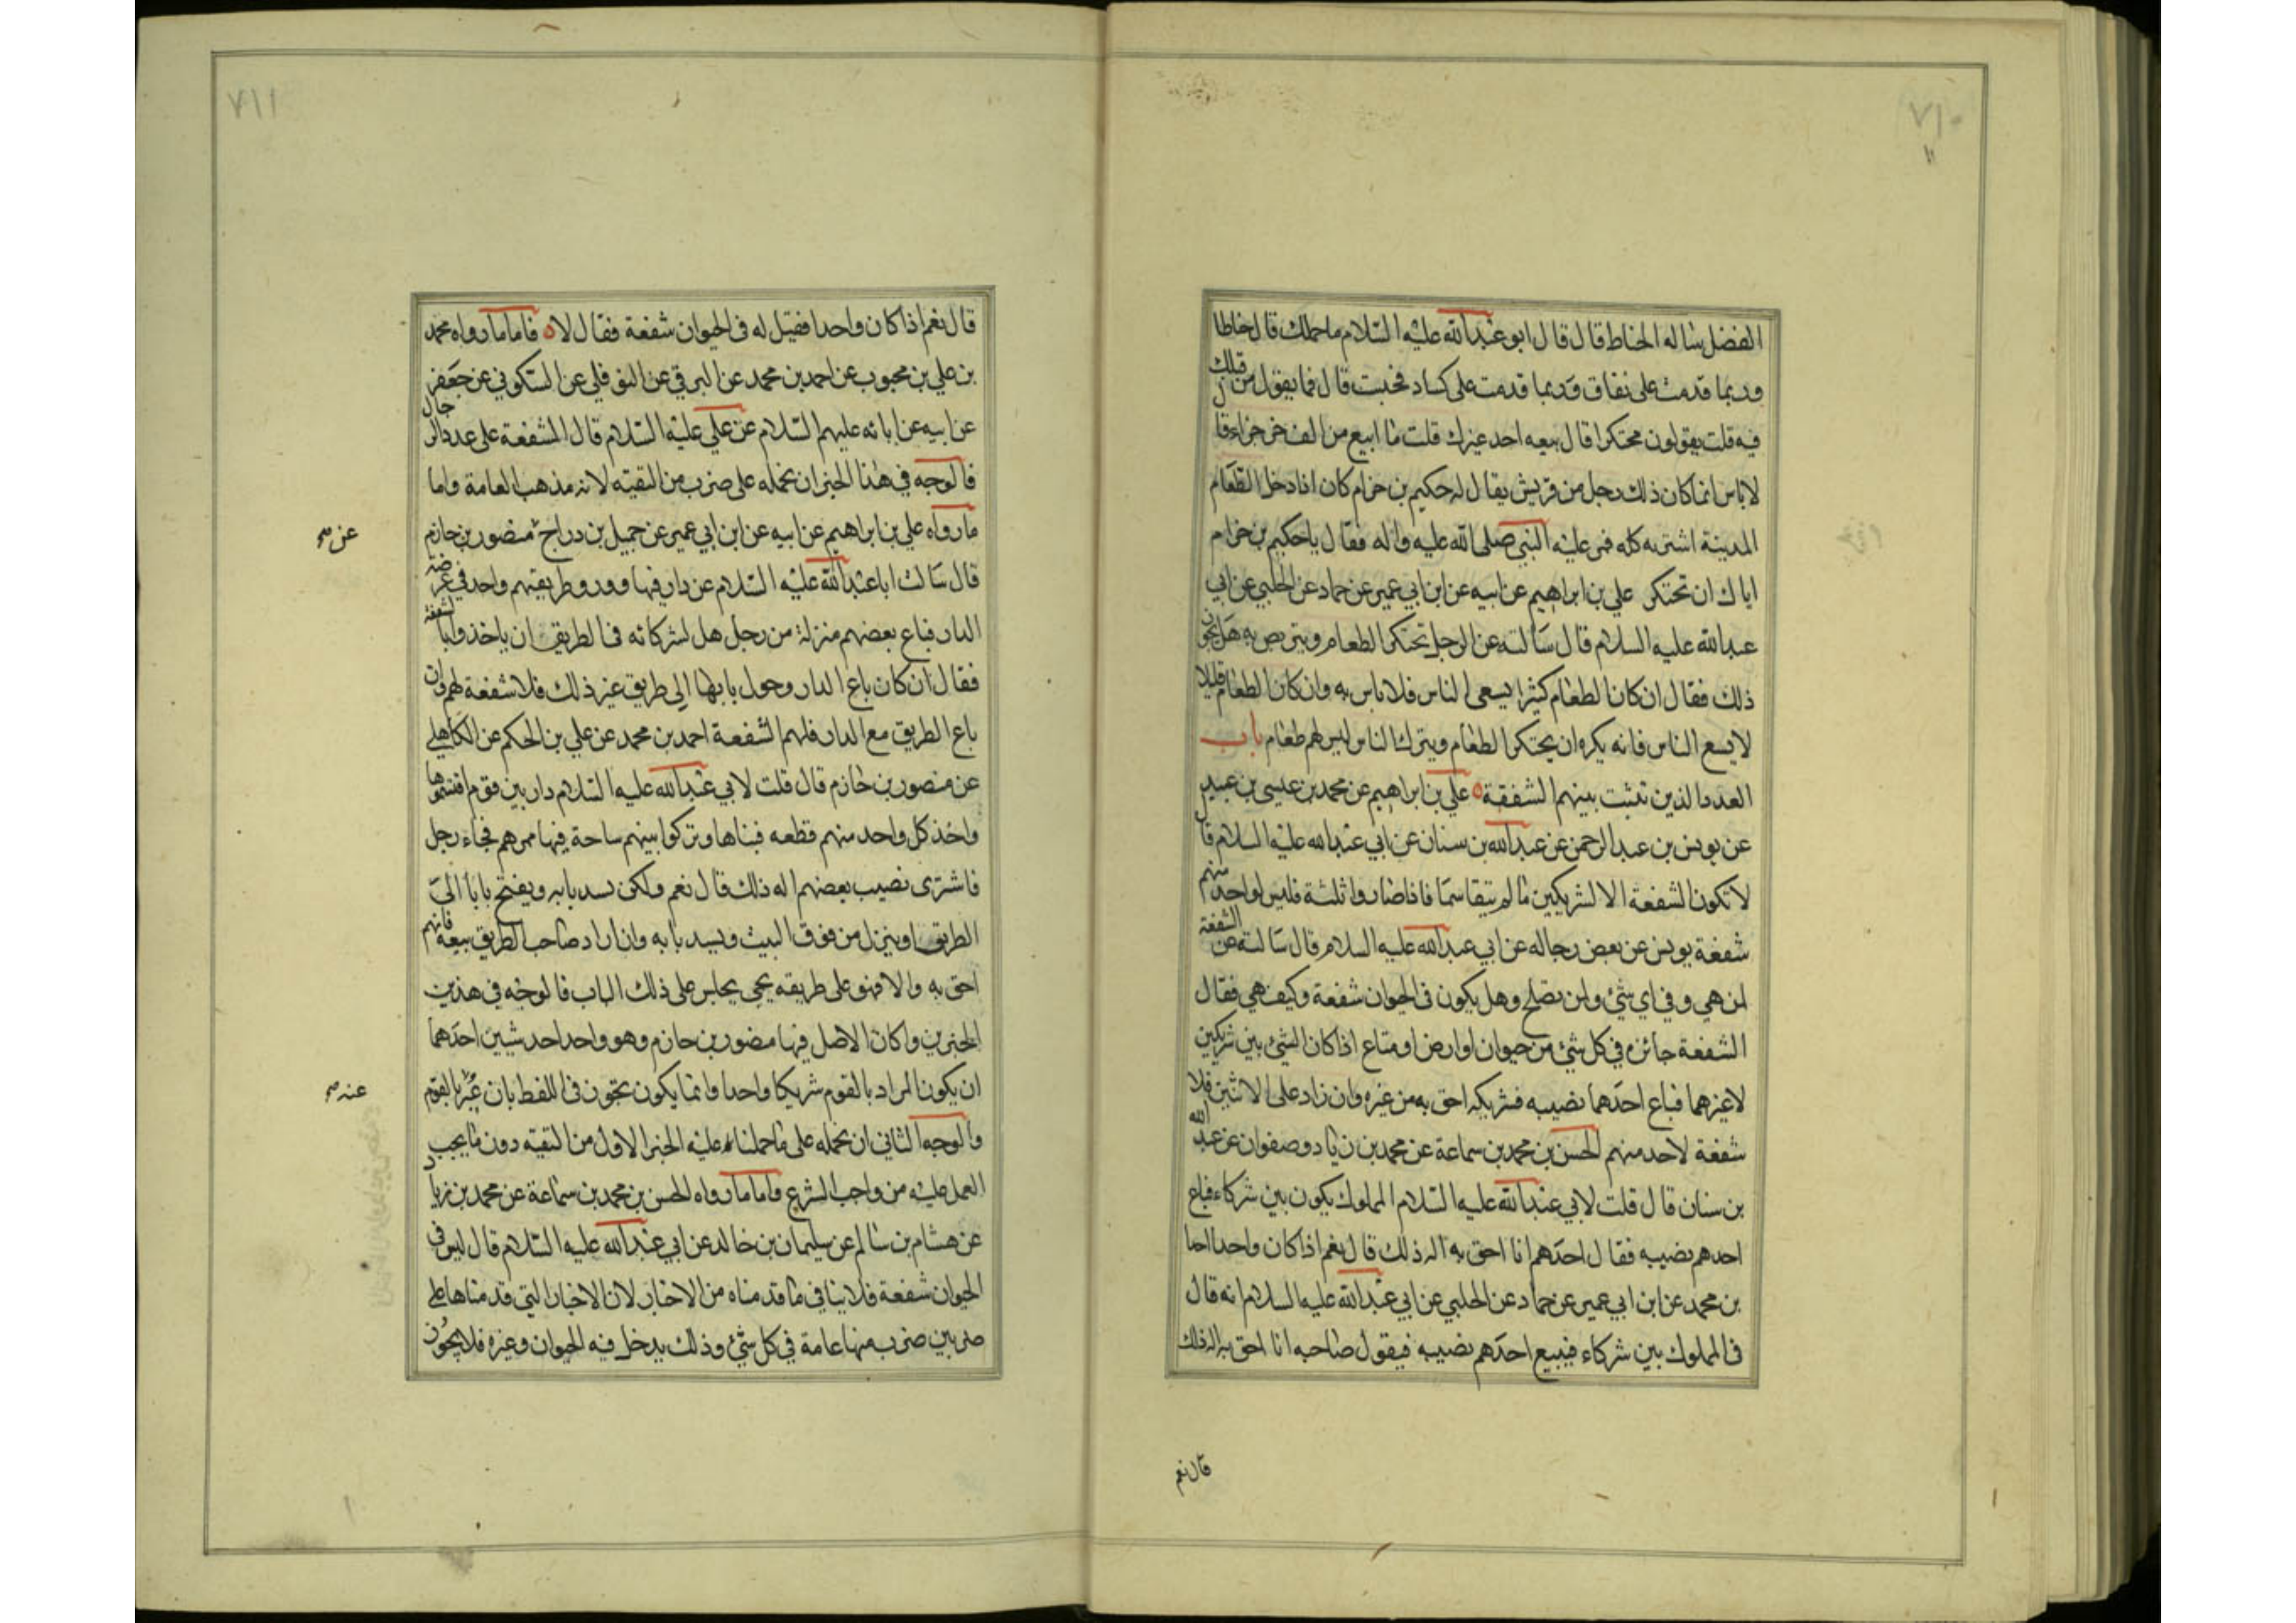 ٧١٠
الفضل سالم الحناط قال قال ابو عبدالله عليه السلام ما عملك قال حناطا
وربما قدمت على نفاق وربما قدمت على كساد فحبست قال فما يقول من قبلك
فيه قلت يقولون محتكرا قال يبيعه احد غيرك قلت ما ابيع من الف جزء جزءا قا
لاباس انما كان ذلك رجل من قريش يقال له حكيم بن حزام كان اذا دخل الطعام
المدينة اشتريه كله فمر عليه النبي صلى الله عليه واله فقال ياحكيم بن حزام
اياك ان تحتكر علي بن ابراهيم عن ابيه عن ابن ابي عمير عن حماد عن الحلبي عن ابي
عبدالله عليه السلام قال سالته عن الرجل تحتكر الطعام ويتربص به هل يجوز
ذلك فقال ان كان الطعام كثيرا يسعى الناس فلا باس به وان كان الطعام قليلا
لايسع الناس فانه يكره ان يحتكر الطعام ويترك الناس ليس لهم طعام باب
العدد الذين تثبت بينهم الشفعة علي بن ابراهيم عن محمد بن عيسى بن عبيد
عن يونس بن عبدالرحمن عن عبدالله بن سنان عن ابي عبدالله عليه السلام قال
لاتكون الشفعة الا لشريكين مالم يتقاسما فاذا صاروا ثلثة فليس لواحد منهم
شفعة يونس عن بعض رجاله عن ابي عبدالله عليه السلام قال سالته عن الشفعة
لمن هي وفي اي شئ ولمن تصلح وهل يكون في الحيوان شفعة وكيف هي فقال
الشفعة جائزه في كل شئ من حيوان او ارض او متاع اذا كان الشئ بين شريكين
لاغيرهما فباع احدهما نصيبه فشريكه احق به من غيره وان زاد على الاثنين فلا
شفعة لاحد منهم الحسن بن محمد بن سماعة عن محمد بن زياد وصفوان عن عبدالله
بن سنان قال قلت لابي عبدالله عليه السلام المملوك يكون بين شركاء فباع
احدهم نصيبه فقال احدهم انا احق به اله ذلك قال نعم اذا كان واحدا احمد
بن محمد عن ابن ابي عمير عن حماد عن الحلبي عن ابي عبدالله عليه السلام انه قال
في المملوك بين شركاء فيبيع احدهم نصيبه فيقول صاحبه انا احق به اله ذلك
قال نعم
٧١١
قال نعم اذا كان واحدا فقيل له في الحيوان شفعة فقال لا فاما ما رواه محمد
بن علي بن محبوب عن احمد بن محمد عن البرقي عن النوفلي عن السكوني عن جعفر
عن ابيه عن ابائه عليهم السلام عن علي عليه السلام قال الشفعة على عدد الرجال
فالوجه في هذا الخبر ان نحمله على ضرب من التقيه لانه مذهب العامة واما
ما رواه علي بن ابراهيم عن ابيه عن ابن ابي عمير عن جميل بن دراج منصور بن حازم
عن صح
قال سالت اباعبدالله عليه السلام عن دار فيها دور وطريقهم واحد في عرصة
الدار فباع بعضهم منزلة من رجل هل لشركائه في الطريق ان ياخذوا بالشفعة
فقال ان كان باع الدار وحول بابها الى طريق غير ذلك فلا شفعة لهم وان
باع الطريق مع الدار فلهم الشفعة احمد بن محمد عن علي بن الحكم عن الكاهلي
عن منصور بن حازم قال قلت لابي عبدالله عليه السلام دار بين قوم اقتسموها
واخذ كل واحد منهم قطعه فبناها وتركوا بينهم ساحة فيها ممرهم فجاء رجل
فاشترى نصيب بعضهم اله ذلك قال نعم ولكن يسد بابه ويفتح بابا الى
الطريق او ينزل من فوق البيت ويسد بابه وان اراد صاحب الطريق بيعه فانهم
احق به والا فهو على طريقه يجي يجلس على ذلك الباب فالوجه في هذين
الخبرين وكان الاصل فيها منصور بن حازم وهو واحد احد شيئين احدهما
ان يكون المراد بالقوم شريكا واحدا وانما يكون تجوز في اللفظ بان عبر بالقوم
عنه صح
والوجه الثاني ان نحمله على ما حملنا عليه الخبر الاول من التقيه دون ما يجب
العمل عليه من واجب الشرع فاما ما رواه الحسن بن محمد بن سماعة عن محمد بن زياد
عن هشام بن سالم عن سليمان بن خالد عن ابي عبدالله عليه السلام قال ليس في
الحيوان شفعة فلا ينافي ما قدمناه من الاخبار لان الاخبار التي قدمناها على
ضربين ضرب منها عامة في كل شئ وذلك يدخل فيه الحيوان وغيره فلا يجوز